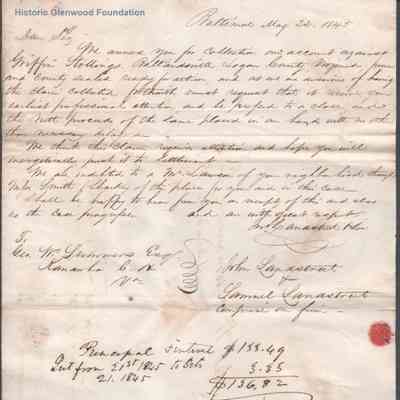 Historic Glenwood Foundation
Baltimore May 22. 1845
Dear Sir,
We annex you for collection our account against
Griffin Stollings, Logan County
and County sealed ready for action and as we are desirous of having
the claim collected forthwith must request that it receive your
earliest professional attention and be pressed to a close and
the Nett proceeds of the same placed in our hands with no other
than necessary delay
We think this claim require attention and hope you will
energetically push it to settlement
We are indebted to a Mr of your neighborhood
of this place for your aid in this case
Shall be happy to hear from you on receipt of this and also
as the case progresses and are with great respect
To
Geo W. Summers Esq
Kanawha C. H
Va
John Landstreet
&
Samuel Landstreet
Comprise our firm
Principal & interest $133.49
Int from 21st 1845 to Oct 3.35
21. 1845 $136.82